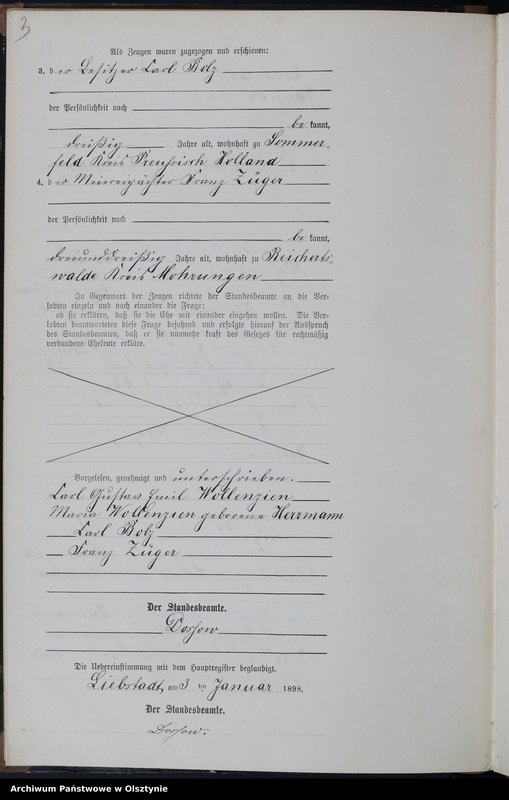 3
Als Zeugen waren zugezogen und erschienen:
3. der Besitzer Carl Bolz
der Persönlichkeit nach
be kannt,
dreißig Jahre alt, wohnhaft zu Sommer-
feld Kreis Preußisch Holland
4. der Meiereipächter Franz Züger
der Persönlichkeit nach
be kannt,
dreiunddreißig Jahre alt, wohnhaft zu Reicherts-
walde Kreis Mohrungen
In Gegenwart der Zeugen richtete der Standesbeamte an die Ver-
lobten einzeln und nach einander die Frage:
ob sie erklären, daß sie die Ehe mit einander eingehen wollen. Die Ver-
lobten beantworteten diese Frage bejahend und erfolgte hierauf der Ausspruch
des Standesbeamten, daß er sie nunmehr kraft des Gesetzes für rechtmäßig
verbundene Eheleute erkläre.
Vorgelesen, genehmigt und unterschrieben.
Carl Gustav Emil Wollenzien
Maria Wollenzien geborene Herrmann
Carl Bolz
Franz Züger
Der Standesbeamte.
Dossow
Die Uebereinstimmung mit dem Hauptregister beglaubigt.
Liebstadt, am 3 ten Januar 1898.
Der Standesbeamte.
Dossow.
Archiwum Państwowe w Olsztynie